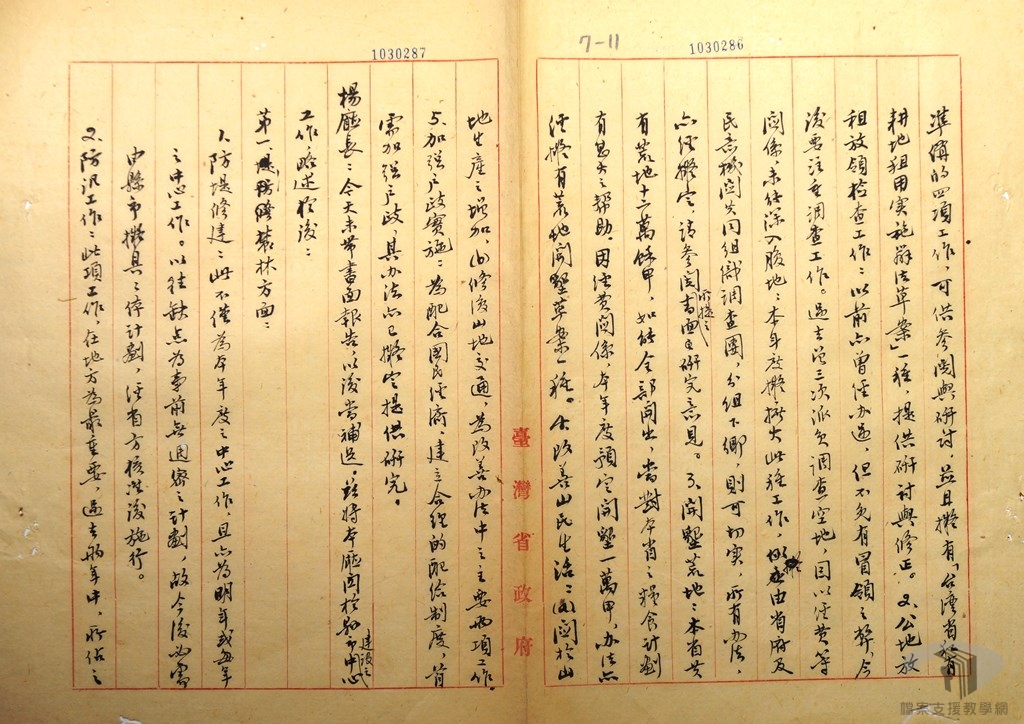 7-11
1030286
準備的四項工作，可供參閱與研討，並且擬有「台灣省私有
耕地租用實施辦法草案」一種，提供研討與修正。2.公地放
租放領檢查工作：以前亦曾經辦過，但不免有冒領之弊，今
後要注重調查工作。過去曾三次派員調查空地，因以經費等
關係，未能深入腹地：本身最擬擴大此種工作，擬由省府及
民意機關共同組織調查團，分組下鄉，則可切實，所有辦法，
亦經擬定，請參閱書面所提之研究意見。3.開墾荒地：本省共
有荒地十二萬餘甲，如能全部開出，當對本省之糧食計劃
有莫大之幫助，因經費關係，本年度預定開墾一萬甲，辦法亦
經擬有荒地開墾草案一種。4.改善山民生活：關於山
1030287
地生產之增加，由修復山地交通，為改善辦法中之主要兩項工作。
5.加強戶政實施：為配合國民經濟，建立合理的配給制度，首
需加強戶政，其辦法亦已擬定提供研究。
楊廳長：今天未帶書面報告，以後當補送，茲將本廳關於建設之中心
工作，略述於後：
第一、農林方面：
1.防堤修建：此不僅為本年度之中心工作，且亦為明年或每年
之中心工作。以往缺点為事前無週密之計劃，故今後必需
由縣市擬具工作計劃，經省方核准後施行。
2.防汛工作：此項工作，在地方為最重要，過去兩年中，所佔之
臺灣省政府
檔案支援教學網